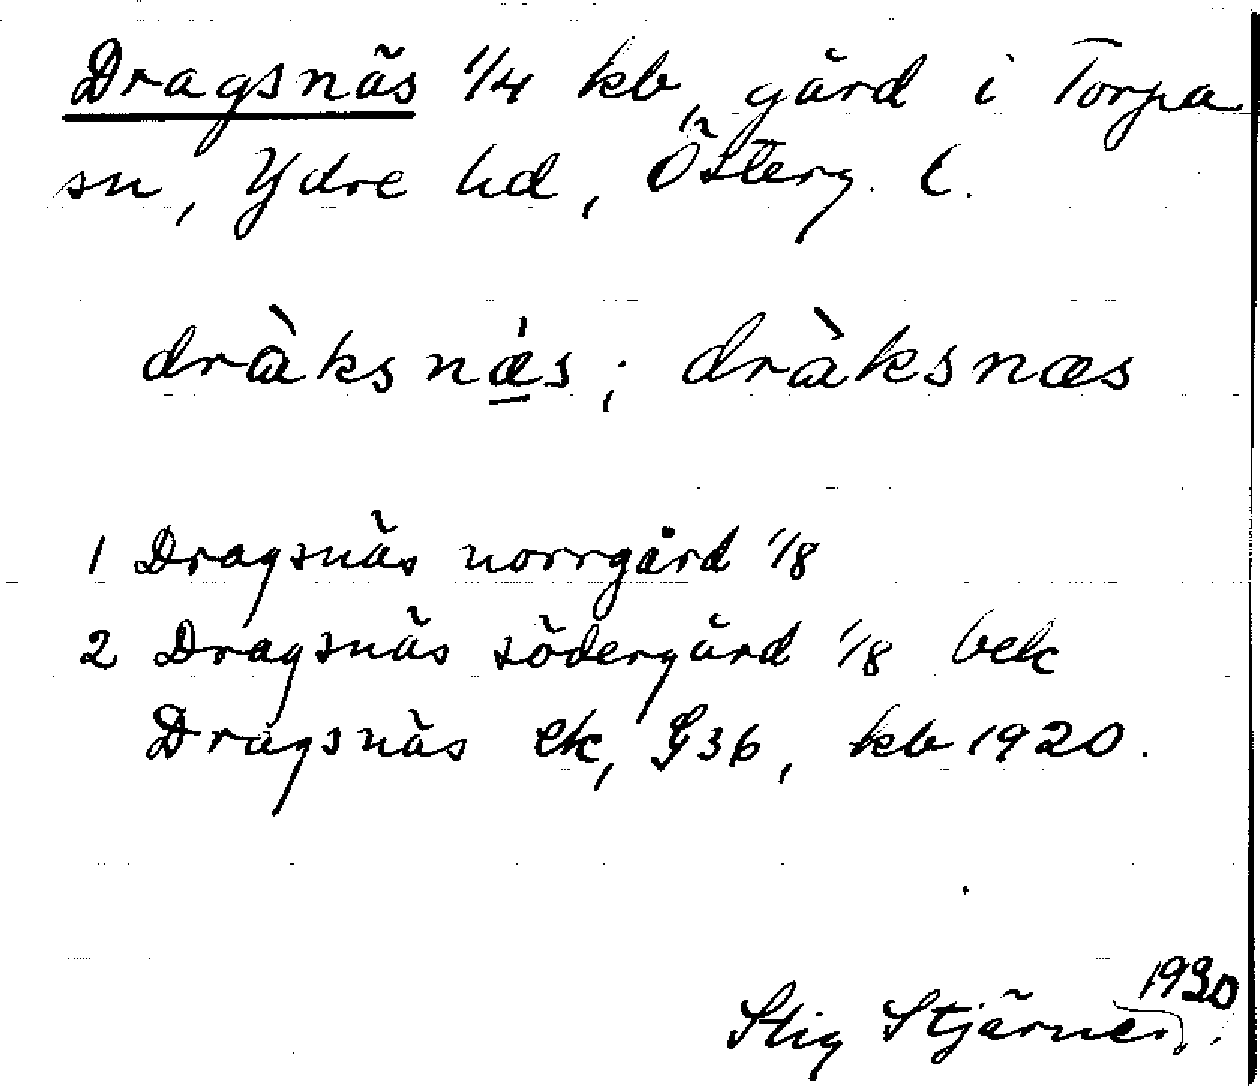 Dragsnäs 1/4 kb, gård i Torpa
sn, Ydre hd, Österg. l.
dràksnǽs; dràksnæs
1 Dragsnäs norrgård 1/8
2 Dragsnäs södergård 1/8 bek
Dragsnäs ek, G36, kb 1920.
1930
Stig Stjärner.